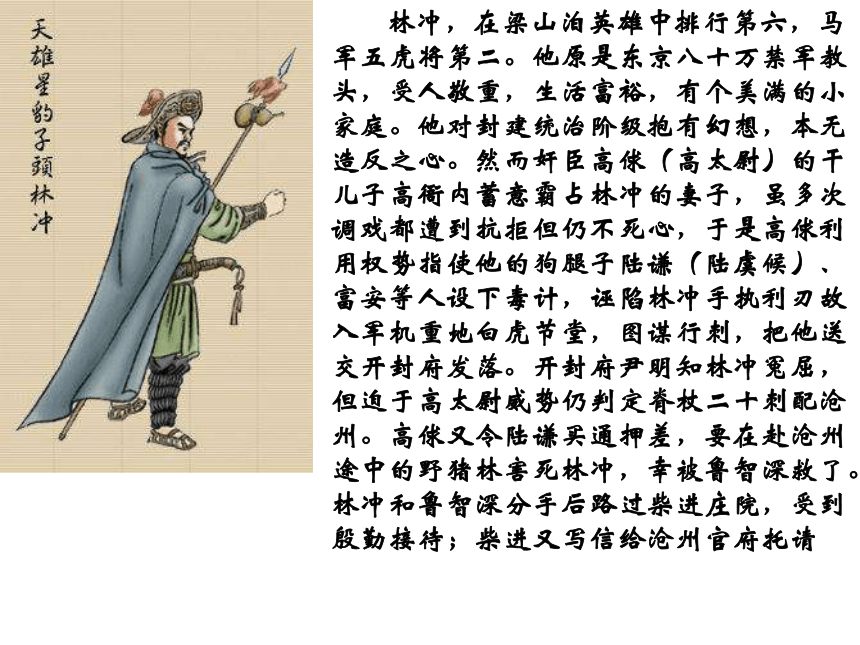 天雄星豹子頭林冲
林冲，在梁山泊英雄中排行第六，马
军五虎将第二。他原是东京八十万禁军教
头，受人敬重，生活富裕，有个美满的小
家庭。他对封建统治阶级抱有幻想，本无
造反之心。然而奸臣高俅（高太尉）的干
儿子高衙内蓄意霸占林冲的妻子，虽多次
调戏都遭到抗拒但仍不死心，于是高俅利
用权势指使他的狗腿子陆谦（陆虞候）、
富安等人设下毒计，诬陷林冲手执利刃故
入军机重地白虎节堂，图谋行刺，把他送
交开封府发落。开封府尹明知林冲冤屈，
但迫于高太尉威势仍判定脊杖二十刺配沧
州。高俅又令陆谦买通押差，要在赴沧州
途中的野猪林害死林冲，幸被鲁智深救了。
林冲和鲁智深分手后路过柴进庄院，受到
殷勤接待；柴进又写信给沧州官府托请